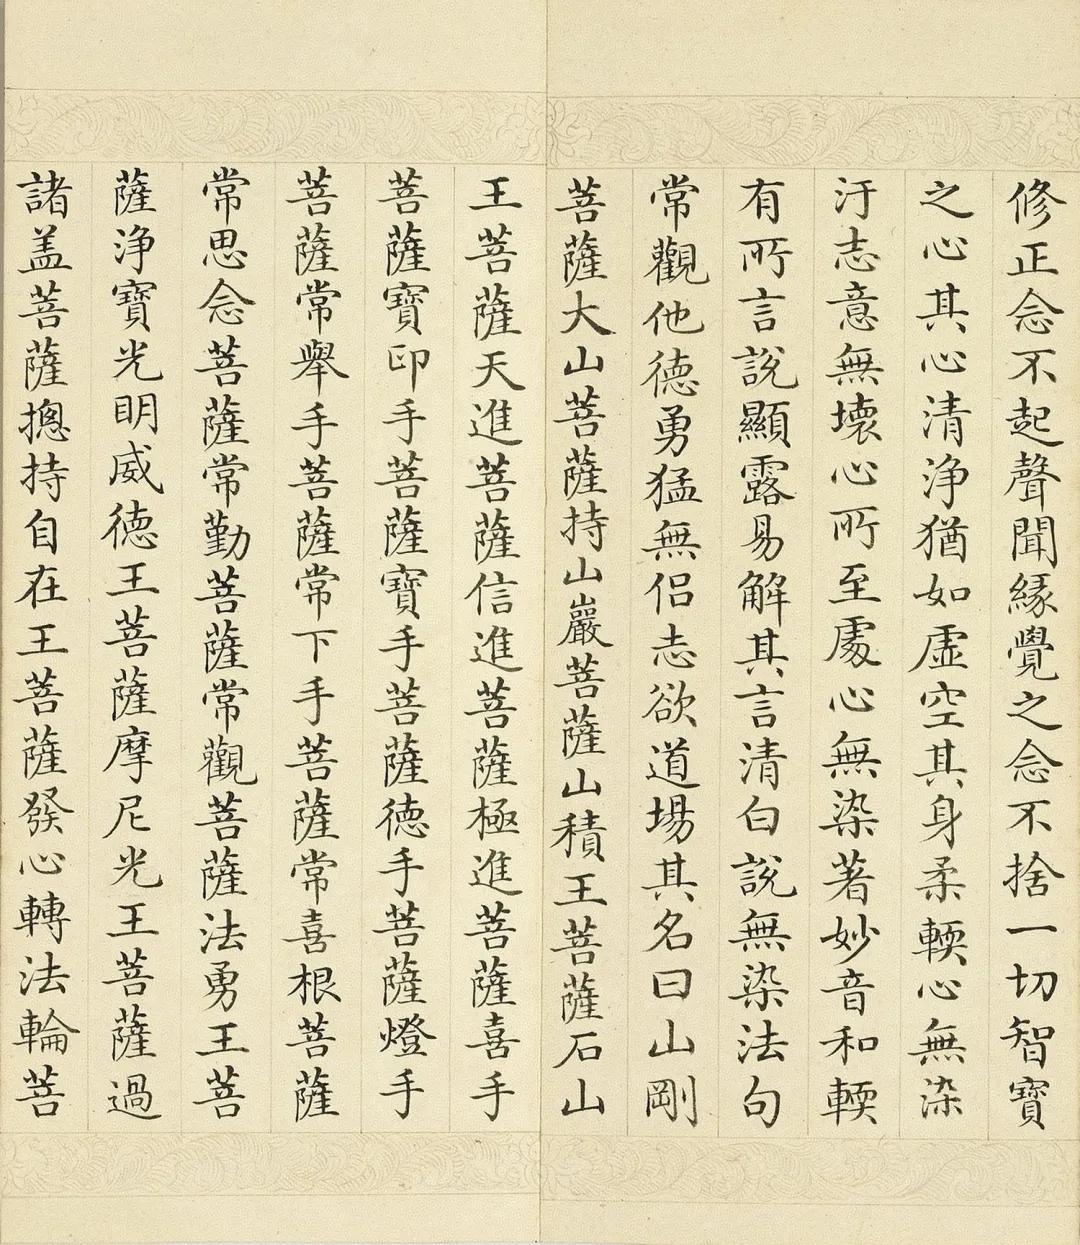 修正念不起聲聞緣覺之念不捨一切智寶
之心其心清淨猶如虛空其身柔輭心無染
汙志意無壞心所至處心無染著妙音和輭
有所言說顯露易解其言清白說無染法句
常觀他德勇猛無侶志欲道場其名曰山剛
菩薩大山菩薩持山巖菩薩山積王菩薩石山
王菩薩天進菩薩信進菩薩極進菩薩喜手
菩薩寶印手菩薩寶手菩薩德手菩薩燈手
菩薩常舉手菩薩常下手菩薩常喜根菩薩
常思念菩薩常勤菩薩常觀菩薩法勇王菩
薩淨寶光明威德王菩薩摩尼光王菩薩過
諸盖菩薩摠持自在王菩薩發心轉法輪菩